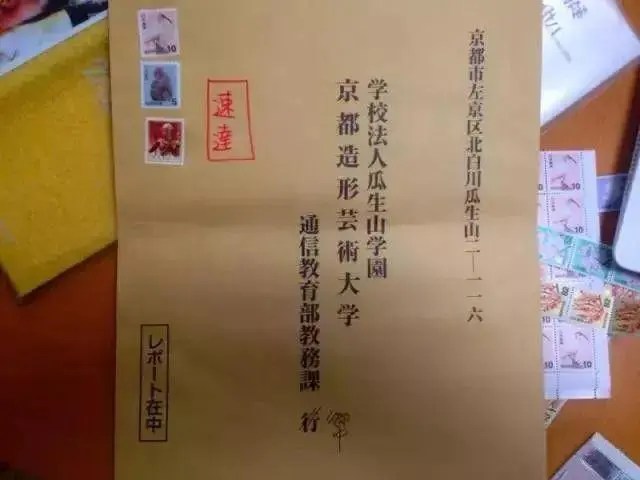 京都市左京区北白川瓜生山二―一一六
学校法人瓜生山学園
京都造形芸術大学
通信教育部教務課 行
御中
速達
レポート在中
10
5
10
10
10
10